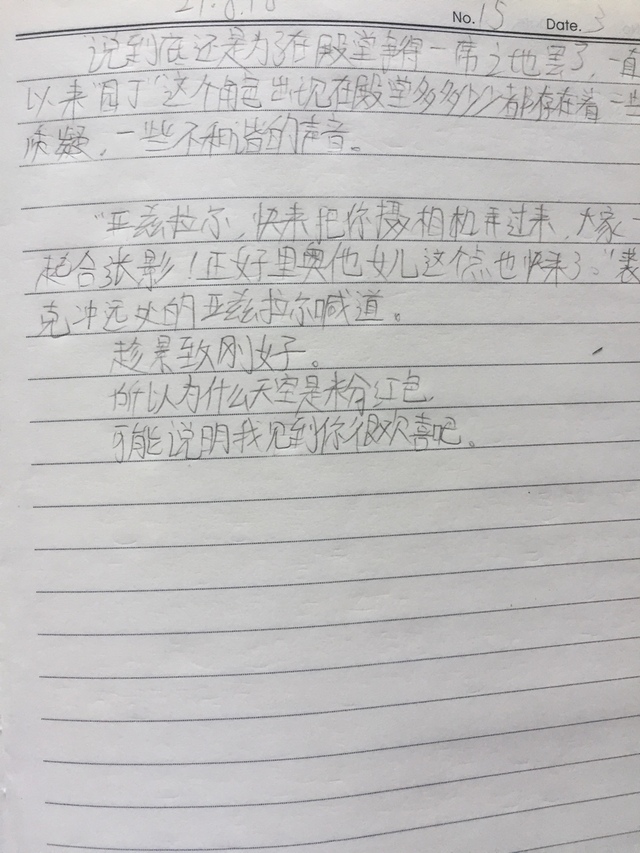 No. 15 Date. 3
说到底还是为了在殿堂争得一席之地罢了,一直
以来"园丁"这个角色出现在殿堂多多少少都存在着一些
质疑,一些不和谐的声音。
"亚兹拉尔,快来把你摄相机弄过来,大家一
起合张影!正好里奥他女儿这个点也快来了。"裴
克冲远处的亚兹拉尔喊道。
趁景致刚好。
所以为什么天空是粉红色
可能说明我见到你很欢喜吧。